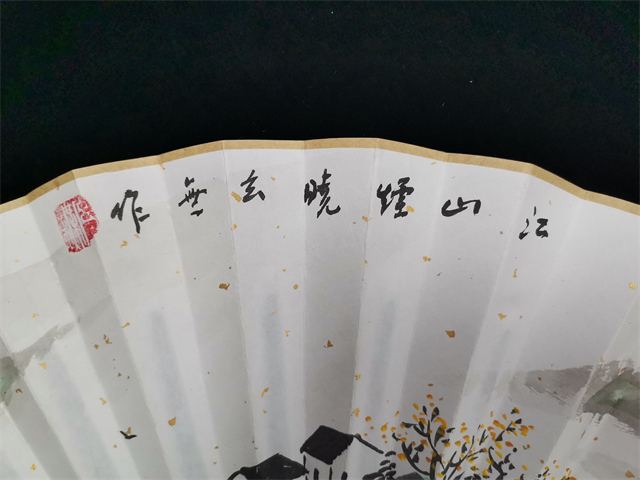 江山煙曉玄無作